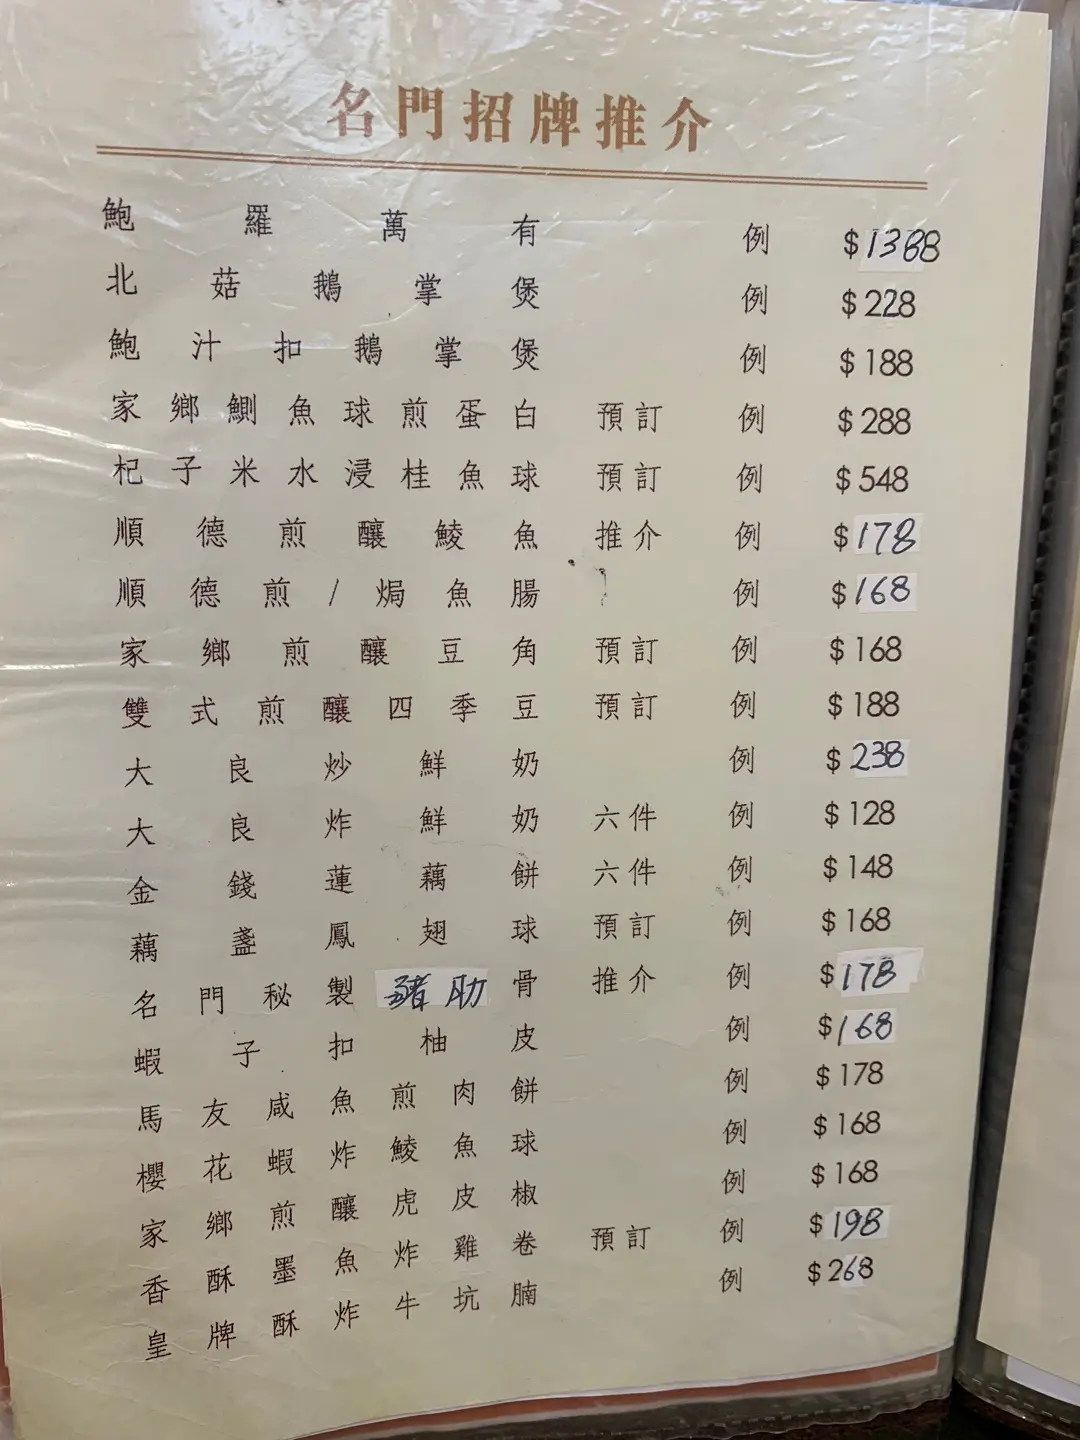 名門招牌推介
鮑羅萬有 例 $1388
北菇鵝掌煲 例 $228
鮑汁扣鵝掌煲 例 $188
家鄉鰂魚球煎蛋白 預訂 例 $288
杞子米水浸桂魚球 預訂 例 $548
順德煎釀鯪魚 推介 例 $178
順德煎/焗魚腸 例 $168
家鄉煎釀豆角 預訂 例 $168
雙式煎釀四季豆 預訂 例 $188
大良炒鮮奶 例 $238
大良炸鮮奶 六件 例 $128
金錢蓮藕餅 六件 例 $148
藕盞鳳翅球 預訂 例 $168
名門秘製豬肋骨 推介 例 $178
蝦子扣柚皮 例 $168
馬友咸魚煎肉餅 例 $178
櫻花蝦炸鯪魚球 例 $168
家鄉煎釀虎皮椒 例 $168
香酥墨魚炸雞卷 預訂 例 $198
皇牌酥炸牛坑腩 例 $268